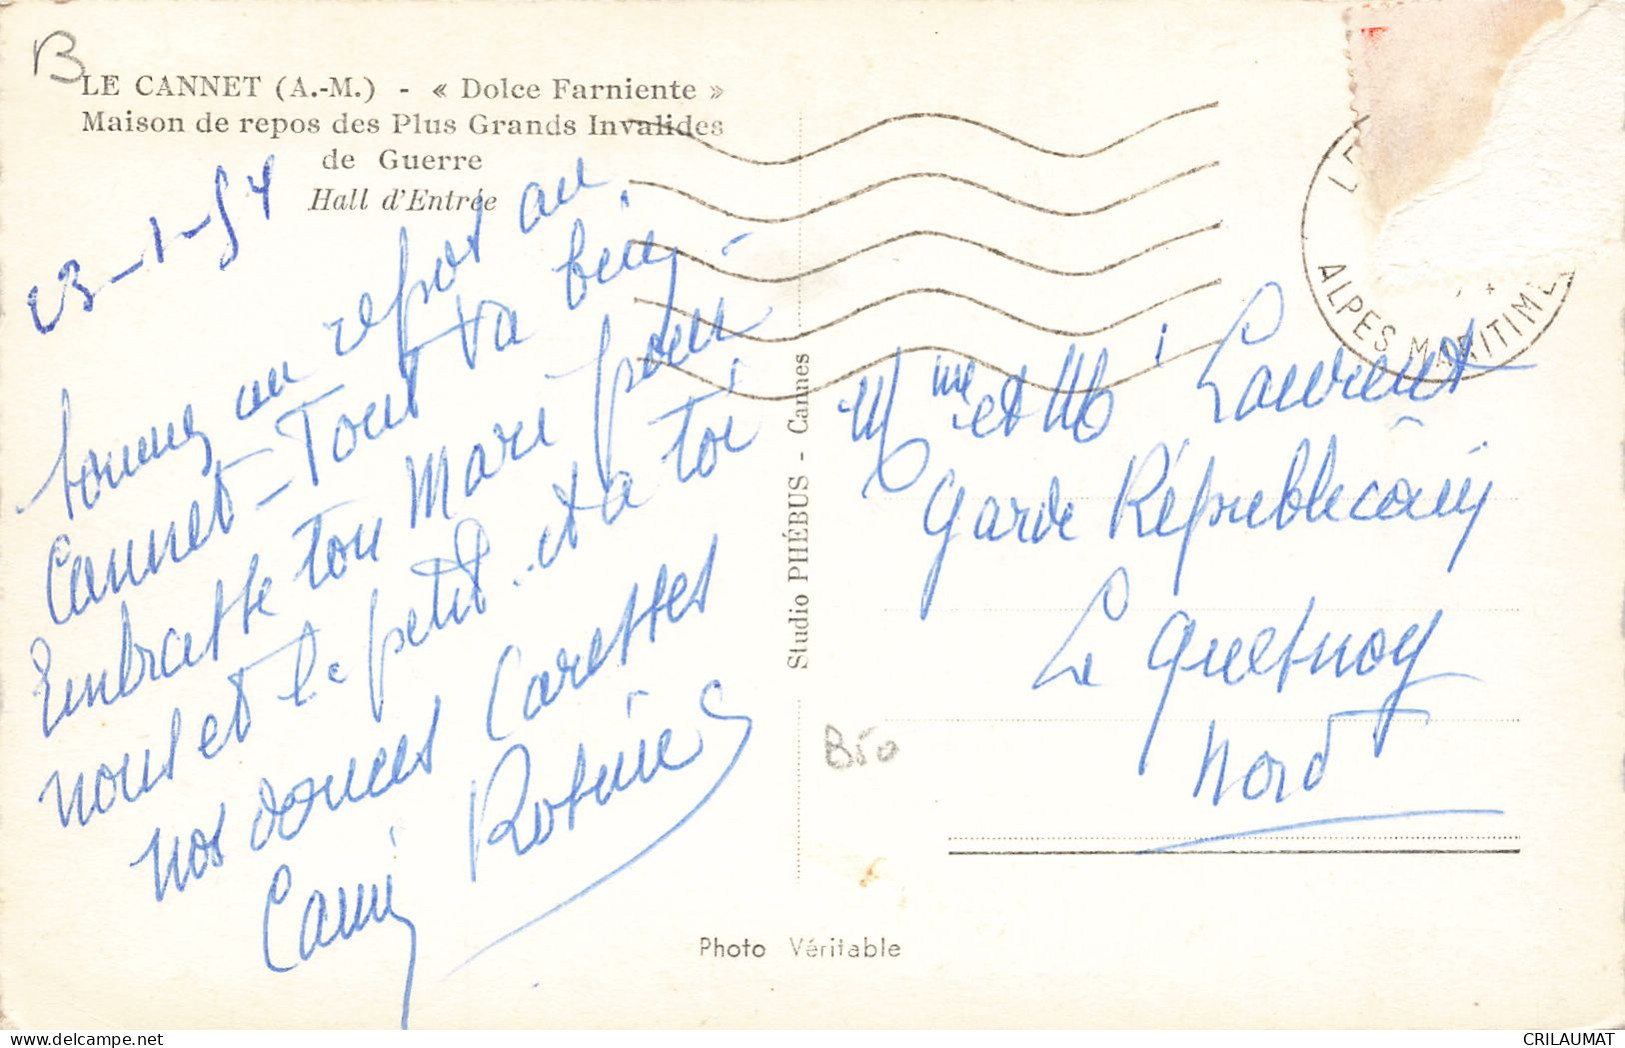 B
LE CANNET (A.-M.) - « Dolce Farniente »
Maison de repos des Plus Grands Invalides
de Guerre
Hall d'Entrée
23-1-54
Sommes au repos au
Cannet - Tout va bien.
Embrasse ton Mari pour
nous et le petit et a toi
nos douces Caresses
Robine
Studio PHÉBUS - Cannes
Photo Véritable
LE
ALPES MARITIME
Mme et Mr Laurent
Garde Républicain
Le Quesnoy
Nord
B50
CRILAUMAT